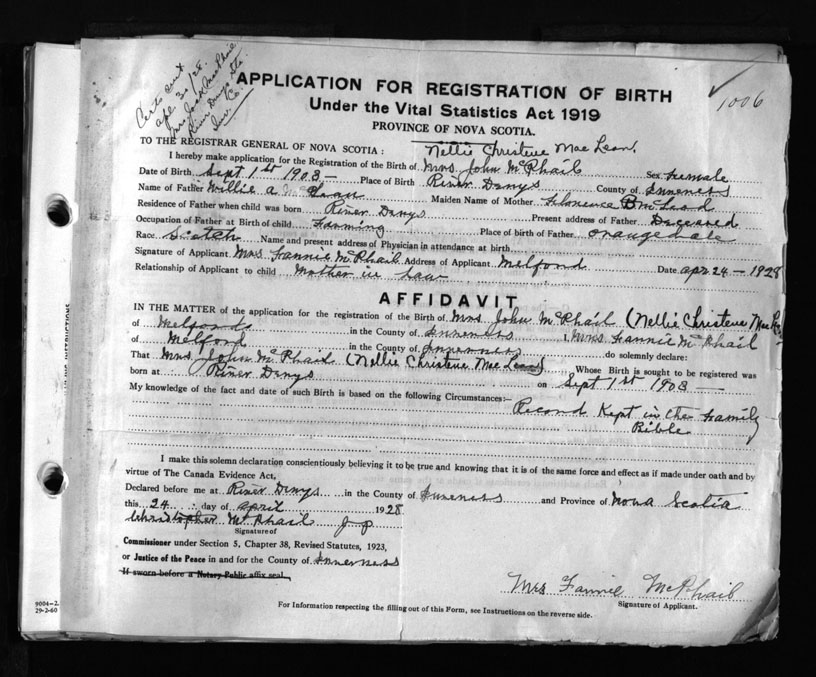 Certs sent
apl 30/28.
Mrs Jack McPhail
River Denys Sta.
Inv. Co.
1006
APPLICATION FOR REGISTRATION OF BIRTH
Under the Vital Statistics Act 1919
PROVINCE OF NOVA SCOTIA.
TO THE REGISTRAR GENERAL OF NOVA SCOTIA: Nellie Christene Mac Lean.
I hereby make application for the Registration of the Birth of Mrs John McPhail Sex female
Date of Birth Sept 1st 1903 — Place of Birth River Denys County of Inverness
Name of Father Willie A McLean Maiden Name of Mother Florence B McLeod
Residence of Father when child was born River Denys Present address of Father Deceased
Occupation of Father at Birth of child Farming Place of birth of Father Orangedale
Race Scotch Name and present address of Physician in attendance at birth
Signature of Applicant Mrs Fannie McPhail Address of Applicant Melford Date apr 24 — 1928
Relationship of Applicant to child Mother in law
AFFIDAVIT
IN THE MATTER of the application for the registration of the Birth of Mrs John McPhail (Nellie Christene Mac
of Melford in the County of Inverness I, Mrs Fannie McPhail
of Melford in the County of Inverness do solemnly declare:
That Mrs John McPhail (Nellie Christene Mac Lean) Whose Birth is sought to be registered was
born at River Denys on Sept 1st 1903 —
My knowledge of the fact and date of such Birth is based on the following Circumstances:—
Record Kept in the Family
Bible
I make this solemn declaration conscientiously believing it to be true and knowing that it is of the same force and effect as if made under oath and by
virtue of The Canada Evidence Act,
Declared before me at River Denys in the County of Inverness and Province of Nova Scotia
this 24 day of April 1928
Christopher McPhail J P
Signature of
Commissioner under Section 5, Chapter 38, Revised Statutes, 1923,
or Justice of the Peace in and for the County of Inverness
If sworn before a Notary Public affix seal.
Mrs Fannie McPhail
Signature of Applicant.
For Information respecting the filling out of this Form, see Instructions on the reverse side.
9004—2.
29-2-60